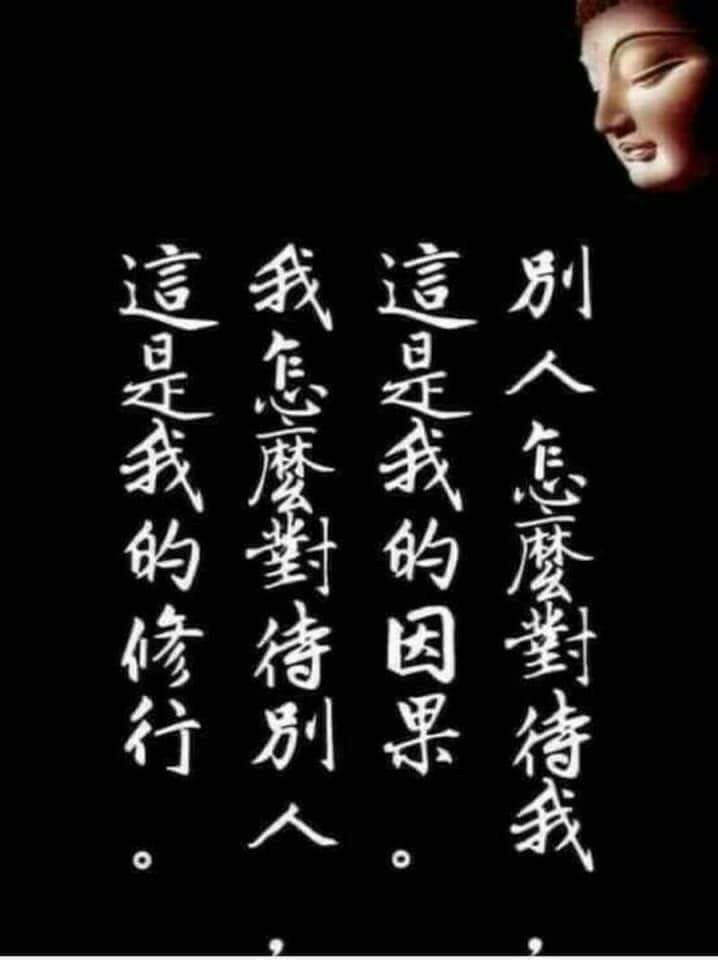 別人怎麼對待我，
這是我的因果。
我怎麼對待別人，
這是我的修行。